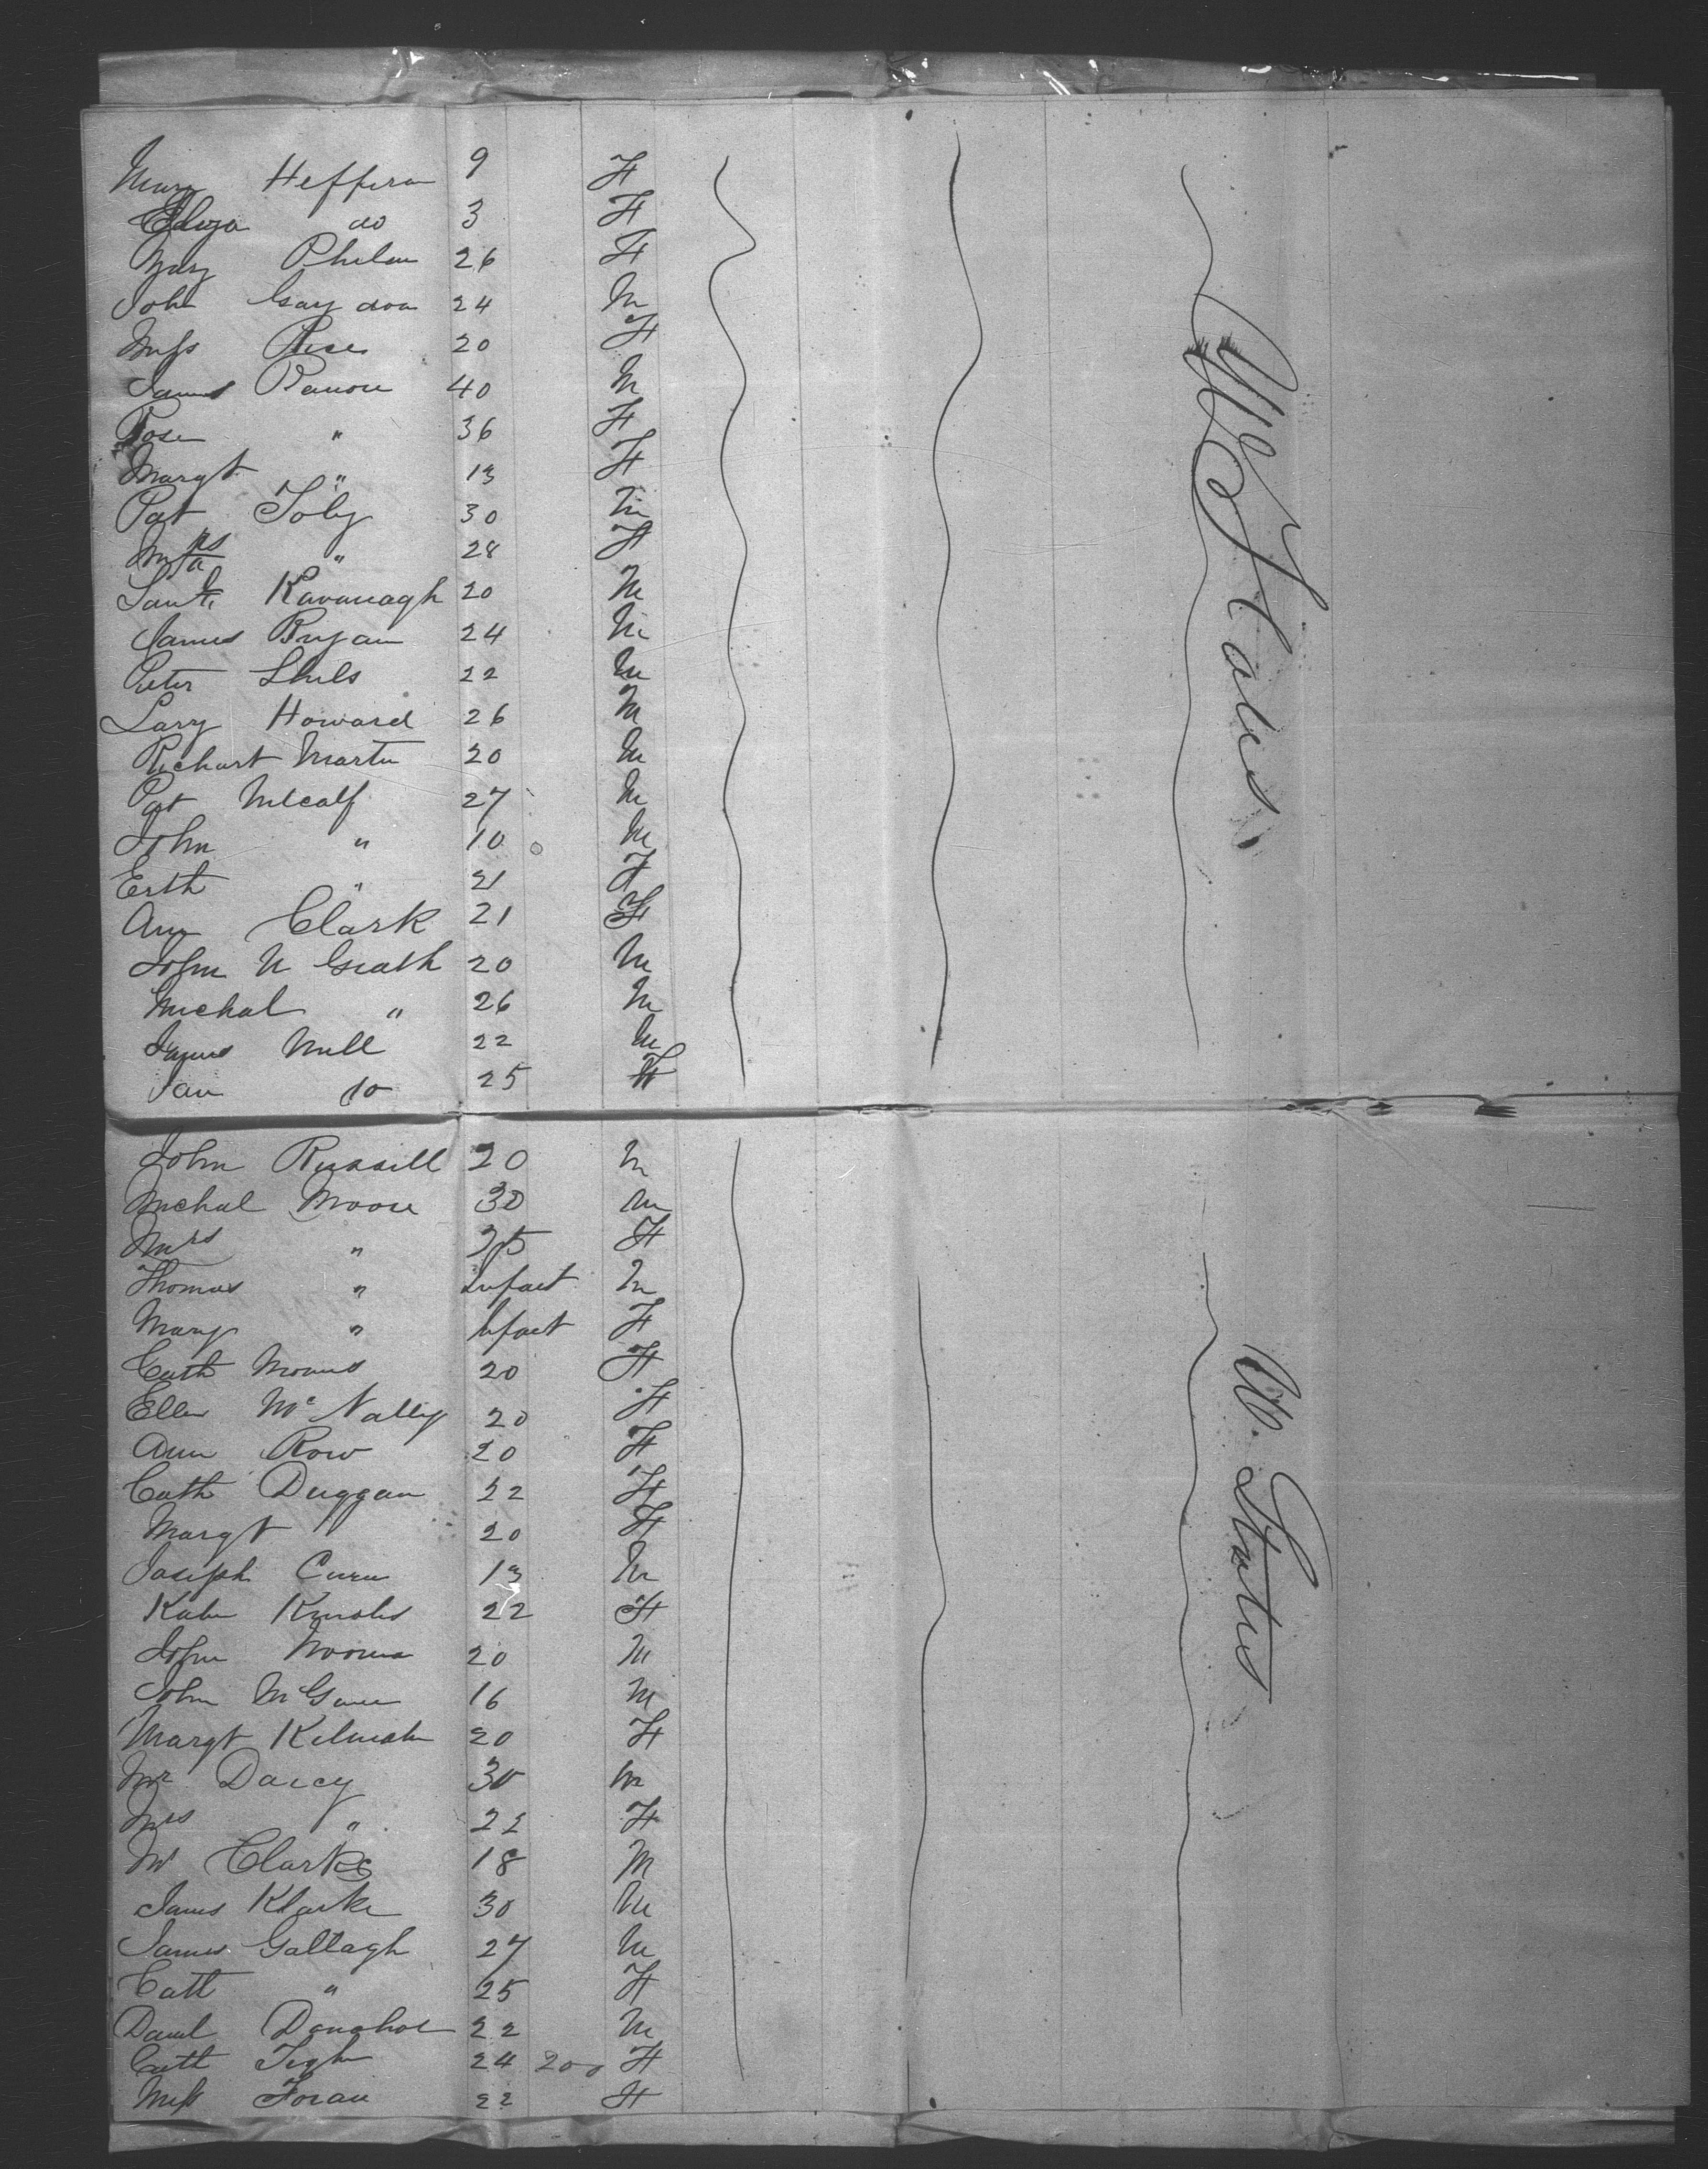 Mary Heffern 9 F
Eliza do 3 F
Mary Phelan 26 F
John Gaydon 24 M
Miss Rice 20 F
James 40 M
Rose " 36 F
Margt " 13 F
Pat Foly 30 M
Mrs " 28 F
Kavanagh 20 M
James Bryan 24 M
Peter Shils 22 M
Lary Howard 26 M
Richart Martin 20 M
Pat Metcalf 27 M
John " 10 M
" 21 F
Ann Clark 21 F
John M Grath 20 M
Michal " 26 M
James 22 M
Jan do 25 F
W States
John Russill 20 M
Michal Moore 30 M
Mrs " 25 F
Thomas " Infant M
Mary " Infant F
Cath 20 F
Ellen Mc Nally 20 F
Ann Row 20 F
Cath Duggan 22 F
Margt 20 F
Joseph 13 M
22 F
John 20 M
John 16 M
Margt 20 F
Mr Darcy 30 M
Mrs " 22 F
M Clarke 18 M
James Klarke 30 M
James Gallagh 27 M
Catt " 25 F
Danl Donahoe 22 M
Catt Tigh 24 200 F
Miss Foran 22 F
W. States